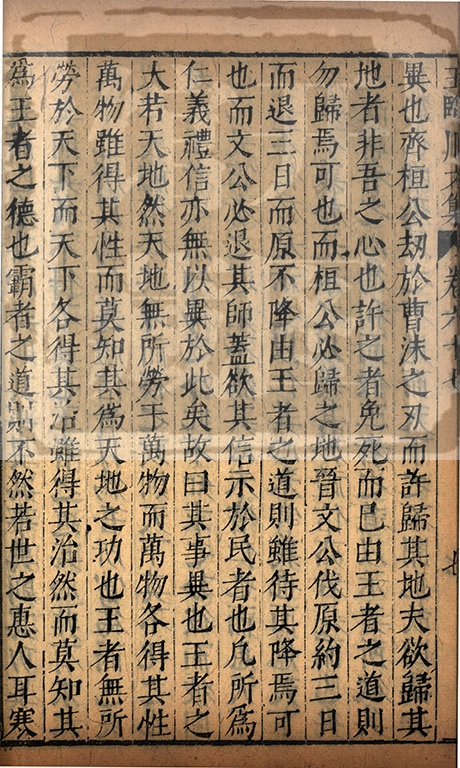 王臨川文集 卷六十七 七
異也齊桓公劫於曹沫之刃而許歸其地夫欲歸其
地者非吾之心也許之者免死而已由王者之道則
勿歸焉可也而桓公必歸之地晉文公伐原約三日
而退三日而原不降由王者之道則雖待其降焉可
也而文公必退其師蓋欲其信示於民者也凡所爲
仁義禮信亦無以異於此矣故曰其事異也王者之
大若天地然天地無所勞于萬物而萬物各得其性
萬物雖得其性而莫知其爲天地之功也王者無所
勞於天下而天下各得其治雖得其治然而莫知其
爲王者之德也霸者之道則不然若世之惠人耳寒